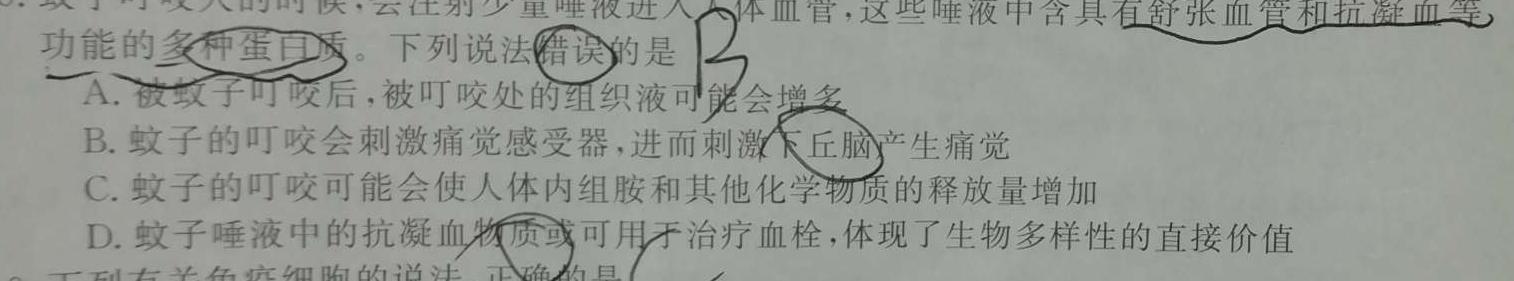 蚊子叮咬人的时候,会注射少量唾液进入人体血管,这些唾液中含具有舒张血管和抗凝血等
功能的多种蛋白质。下列说法错误的是 B
A. 被蚊子叮咬后,被叮咬处的组织液可能会增多
B. 蚊子的叮咬会刺激痛觉感受器,进而刺激下丘脑产生痛觉
C. 蚊子的叮咬可能会使人体内组胺和其他化学物质的释放量增加
D. 蚊子唾液中的抗凝血物质或可用于治疗血栓,体现了生物多样性的直接价值
下列有关免疫细胞的说法,正确的是